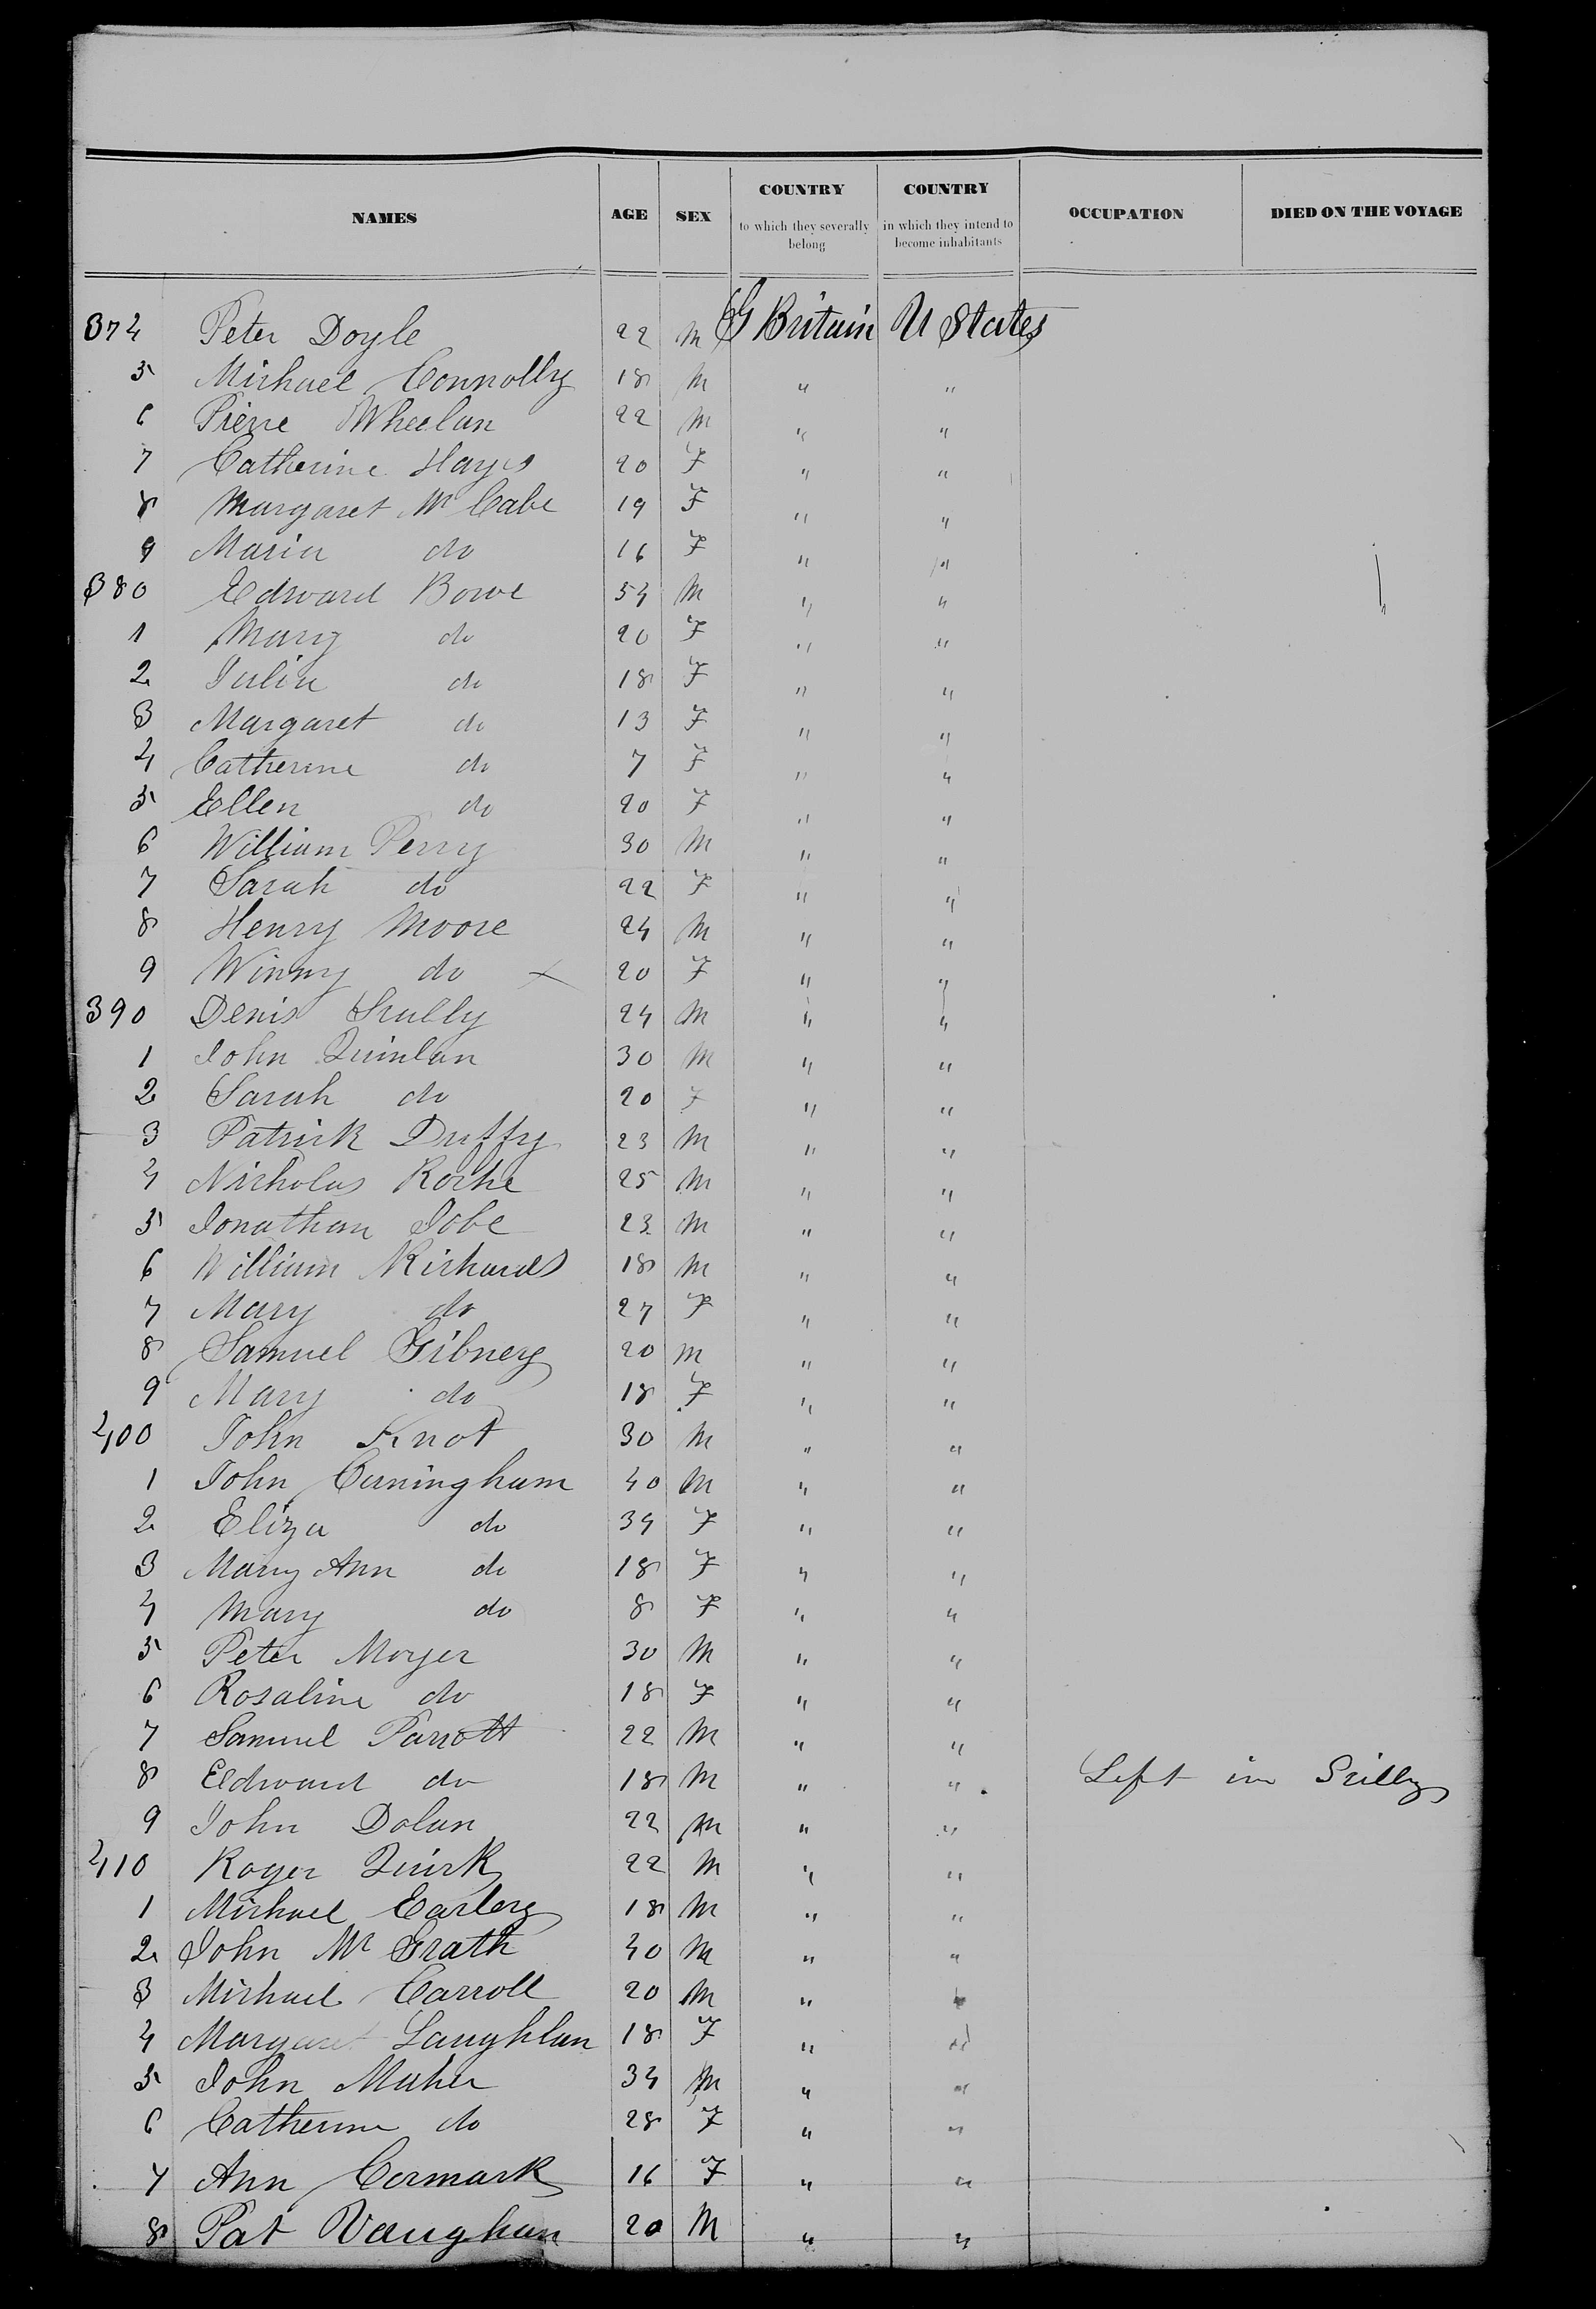 NAMES AGE SEX COUNTRY to which they severally belong COUNTRY in which they intend to become inhabitants OCCUPATION DIED ON THE VOYAGE
374 Peter Doyle 22 M G Britain U States
5 Michael Connolly 18 M " "
6 Pierre Wheelan 22 M " "
7 Catherine Hayes 20 F " "
8 Margaret Mc Cabe 19 F " "
9 Maria do 16 F " "
380 Edward Bowe 54 M " "
1 Mary do 20 F " "
2 Julia do 18 F " "
3 Margaret do 13 F " "
4 Catherine do 7 F " "
5 Ellen do 20 F " "
6 William Perry 30 M " "
7 Sarah do 22 F " "
8 Henry Moore 24 M " "
9 Winny do x 20 F " "
390 Denis Scully 24 M " "
1 John Quinlan 30 M " "
2 Sarah do 20 F " "
3 Patrick Duffy 23 M " "
4 Nicholas Roche 25 M " "
5 Jonathan Jobe 23 M " "
6 William Richards 18 M " "
7 Mary do 27 F " "
8 Samuel Gibney 20 M " "
9 Mary do 18 F " "
400 John Knot 30 M " "
1 John Cunningham 40 M " "
2 Eliza do 34 F " "
3 Mary Ann do 18 F " "
4 Mary do 8 F " "
5 Peter Moyer 30 M " "
6 Rosaline do 18 F " "
7 Samuel Parrott 22 M " "
8 Edward do 18 M " " Left in Scilly
9 John Dolan 22 M " "
410 Roger Quirk 22 M " "
1 Michael Earley 18 M " "
2 John Mc Grath 40 M " "
3 Michael Carroll 20 M " "
4 Margaret Laughlan 18 F " "
5 John Maher 34 M " "
6 Catherine do 28 F " "
7 Ann Cormack 16 F " "
8 Pat Vaughan 20 M " "